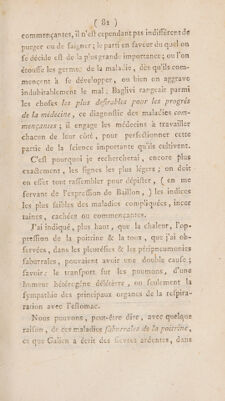 ( 82 )
commençantes, il n'est cependant pas indifférent de
purger ou de saigner ; le parti en faveur du quel on
se décide est de la plus grande importance ; ou l'on
étouffe les germes de la maladie, dès qu'ils com-
mencent à se développer, ou bien on aggrave
indubitablement le mal. Baglivi rangeait parmi
les choses les plus desirables pour les progrès
de la médecine, ce diagnostic des maladies com-
mençantes ; il engage les médecins à travailler
chacun de leur côté, pour perfectionner cette
partie de la science importante qu'ils cultivent.
C'est pourquoi je rechercherai, encore plus
exactement, les signes les plus légers ; on doit
en effet tout rassembler pour dépister, ( en me
servant de l'expression de Baillon, ) les indices
les plus faibles des maladies compliquées, incer
taines, cachées ou commençantes.
J'ai indiqué, plus haut, que la chaleur, l'op-
pression de la poitrine & la toux, que j'ai ob-
servées, dans les pleurésies & les péripneumonies
saburrales, pouvaient avoir une double cause ;
savoir : le transport sur les poumons, d'une
humeur hétérogène délétère, ou seulement la
sympathie des principaux organes de la respira-
ration avec l'estomac.
Nous pouvons, peut-être dire, avec quelque
raison, de ces maladies saburrales de la poitrine,
ce que Galien a écrit des fievres ardentes, dans